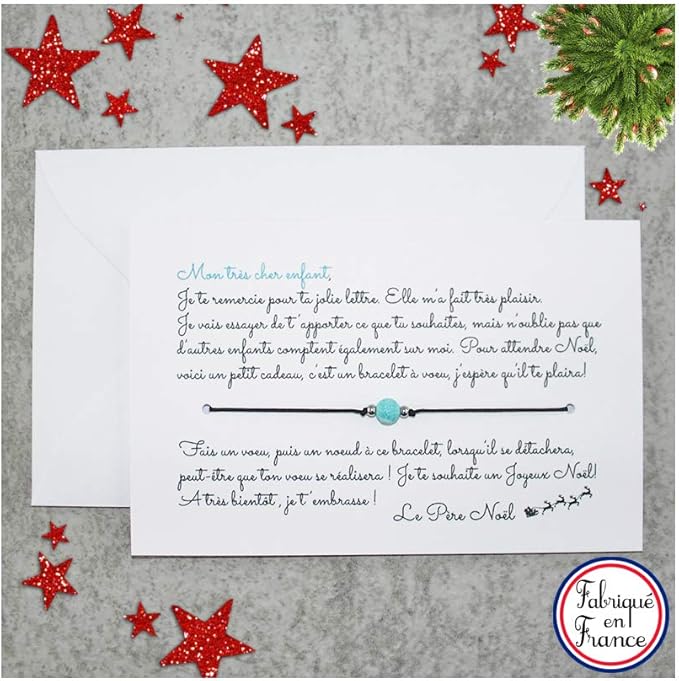 Mon très cher enfant,
Je te remercie pour ta jolie lettre. Elle m'a fait très plaisir.
Je vais essayer de t'apporter ce que tu souhaites, mais n'oublie pas que
d'autres enfants comptent également sur moi. Pour attendre Noël,
voici un petit cadeau, c'est un bracelet à voeu, j'espère qu'il te plaira!
Fais un voeu, puis un noeud à ce bracelet, lorsqu'il se détachera,
peut-être que ton voeu se réalisera ! Je te souhaite un Joyeux Noël!
A très bientôt, je t'embrasse !
Le Père Noël
Fabriqué
en
France